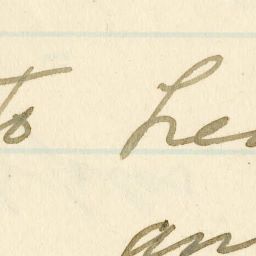 to hea
an